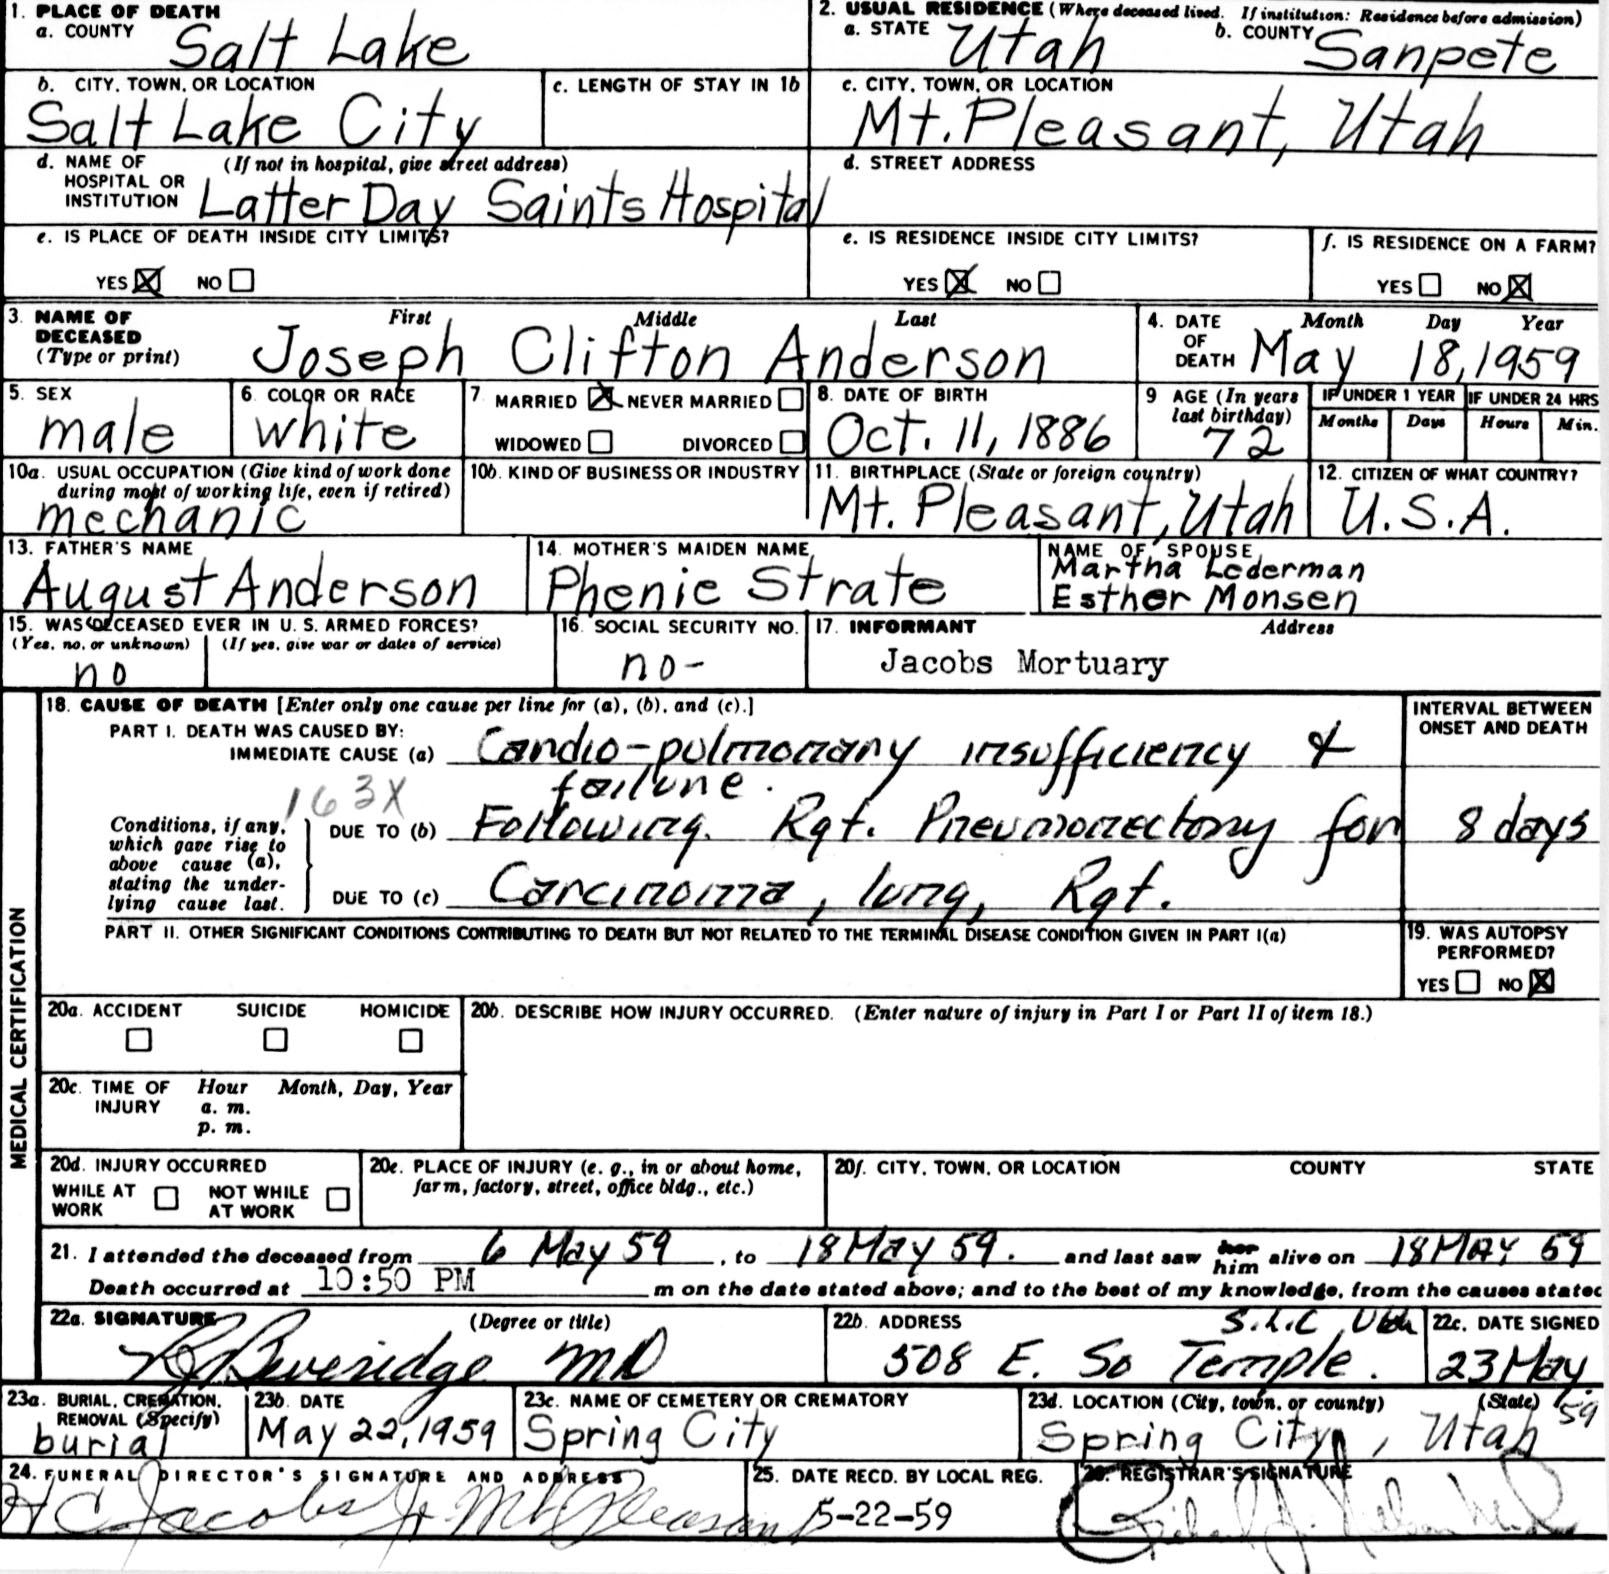 1. PLACE OF DEATH
a. COUNTY Salt Lake
2. USUAL RESIDENCE (Where deceased lived. If institution: Residence before admission)
a. STATE Utah b. COUNTY Sanpete
b. CITY, TOWN, OR LOCATION
Salt Lake City
c. LENGTH OF STAY IN 1b
c. CITY, TOWN, OR LOCATION
Mt. Pleasant, Utah
d. NAME OF HOSPITAL OR INSTITUTION (If not in hospital, give street address)
Latter Day Saints Hospital
d. STREET ADDRESS
e. IS PLACE OF DEATH INSIDE CITY LIMITS?
YES NO
e. IS RESIDENCE INSIDE CITY LIMITS?
YES NO
f. IS RESIDENCE ON A FARM?
YES NO
3. NAME OF DECEASED (Type or print)
First Middle Last
Joseph Clifton Anderson
4. DATE OF DEATH
Month Day Year
May 18, 1959
5. SEX
male
6. COLOR OR RACE
white
7. MARRIED NEVER MARRIED
WIDOWED DIVORCED
8. DATE OF BIRTH
Oct. 11, 1886
9 AGE (In years last birthday)
72
IF UNDER 1 YEAR
Months Days
IF UNDER 24 HRS
Hours Min.
10a. USUAL OCCUPATION (Give kind of work done during most of working life, even if retired)
mechanic
10b. KIND OF BUSINESS OR INDUSTRY
11. BIRTHPLACE (State or foreign country)
Mt. Pleasant, Utah
12. CITIZEN OF WHAT COUNTRY?
U.S.A.
13. FATHER'S NAME
August Anderson
14. MOTHER'S MAIDEN NAME
Phenie Strate
NAME OF SPOUSE
Martha Lederman
Esther Monsen
15. WAS DECEASED EVER IN U. S. ARMED FORCES?
(Yes, no, or unknown) (If yes, give war or dates of service)
no
16. SOCIAL SECURITY NO.
no-
17. INFORMANT Address
Jacobs Mortuary
MEDICAL CERTIFICATION
18. CAUSE OF DEATH [Enter only one cause per line for (a), (b), and (c).]
PART I. DEATH WAS CAUSED BY:
IMMEDIATE CAUSE (a) Cardio-pulmonary insufficiency &
failure.
163X
Conditions, if any, which gave rise to above cause (a), stating the underlying cause last.
DUE TO (b) Following. Rgt. Pneumonectomy for
DUE TO (c) Carcinoma, lung, Rgt.
INTERVAL BETWEEN ONSET AND DEATH
8 days
PART II. OTHER SIGNIFICANT CONDITIONS CONTRIBUTING TO DEATH BUT NOT RELATED TO THE TERMINAL DISEASE CONDITION GIVEN IN PART I(a)
19. WAS AUTOPSY PERFORMED?
YES NO
20a. ACCIDENT SUICIDE HOMICIDE
20b. DESCRIBE HOW INJURY OCCURRED. (Enter nature of injury in Part I or Part II of item 18.)
20c. TIME OF INJURY Hour Month, Day, Year
a. m.
p. m.
20d. INJURY OCCURRED
WHILE AT WORK NOT WHILE AT WORK
20e. PLACE OF INJURY (e. g., in or about home, farm, factory, street, office bldg., etc.)
20f. CITY, TOWN, OR LOCATION COUNTY STATE
21. I attended the deceased from 6 May 59, to 18 May 59. and last saw her him alive on 18 MAY 59
Death occurred at 10:50 PM m on the date stated above; and to the best of my knowledge, from the causes stated
22a. SIGNATURE (Degree or title)
Beveridge MD
22b. ADDRESS S.L.C, Utah
508 E. So Temple.
22c. DATE SIGNED
23 May 59
23a. BURIAL, CREMATION, REMOVAL (Specify)
burial
23b. DATE
May 22, 1959
23c. NAME OF CEMETERY OR CREMATORY
Spring City
23d. LOCATION (City, town, or county) (State)
Spring City, Utah
24. FUNERAL DIRECTOR'S SIGNATURE AND ADDRESS
H C Jacobs Jr Mt Pleasant
25. DATE RECD. BY LOCAL REG.
5-22-59
26. REGISTRAR'S SIGNATURE